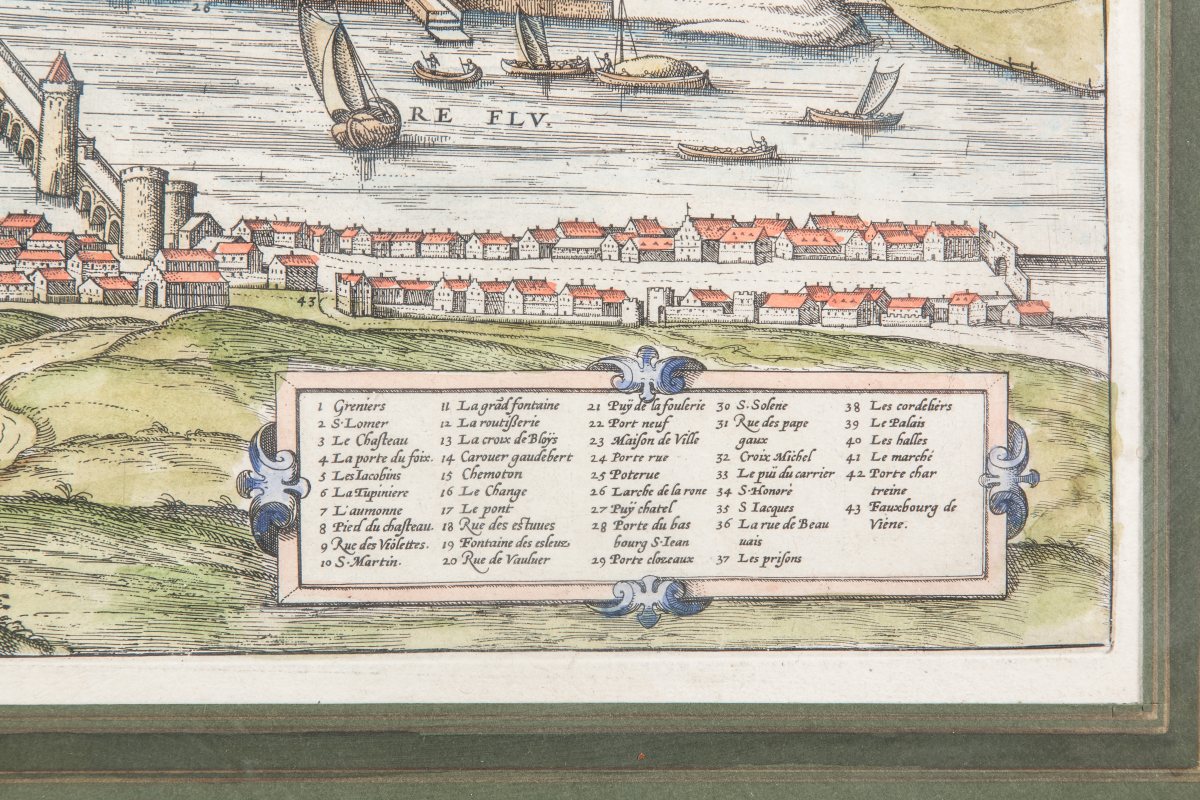 26
RE FLV.
43
1 Greniers
2 S. Lomer
3 Le Chasteau
4 La porte du foix.
5 Les Iacobins
6 La Tupiniere
7 L'aumonne
8 Pied du chasteau.
9 Rue des Violettes.
10 S. Martin.
11 La grād fontaine
12 La routisserie
13 La croix de Bloÿs
14 Carouer gaudebert
15 Chemoton
16 Le Change
17 Le pont
18 Rue des estuues
19 Fontaine des esleuz
20 Rue de Vauluer
21 Puÿ de la foulerie
22 Port neuf
23 Maison de Ville
24 Porte rue
25 Poterue
26 Larche de la rone
27 Puÿ chatel
28 Porte du bas
bourg S. Iean
29 Porte clozeaux
30 S. Solene
31 Rue des pape
gaux
32 Croix Michel
33 Le puü du carrier
34 S. Honore
35 S Iacques
36 La rue de Beau
uais
37 Les prisons
38 Les cordeliers
39 Le Palais
40 Les halles
41 Le marché
42 Porte char
treine
43 Fauxbourg de
Viēne.